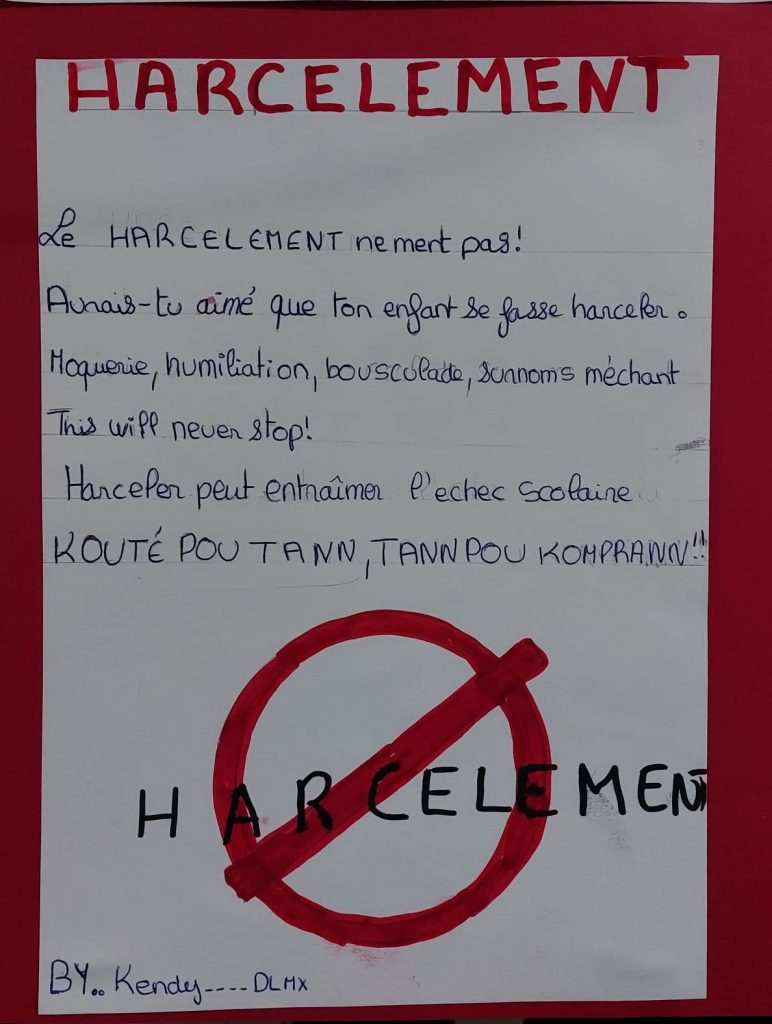 HARCELEMENT
Le HARCELEMENT ne ment pas!
Aurais-tu aimé que ton enfant se fasse harceler.
Moquerie, humiliation, bouscolade, surnoms méchant
This will never stop!
Harceler peut entraîmer l'echec scolaire
KOUTÉ POU TANN, TANN POU KOMPRANN!!
HARCELEMENT
BY.. Kendy---- DLMX